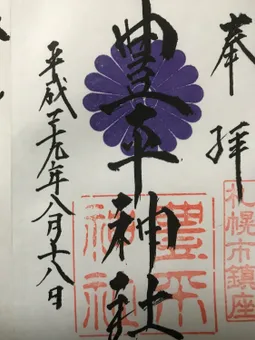 奉拝
札幌市鎮座
豊平神社
豊平
神社
平成二十九年八月十八日